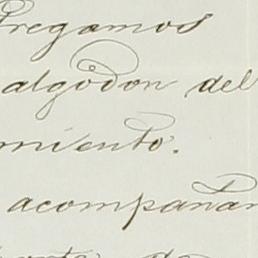 tregamos
algodon del
miento.
acompañan